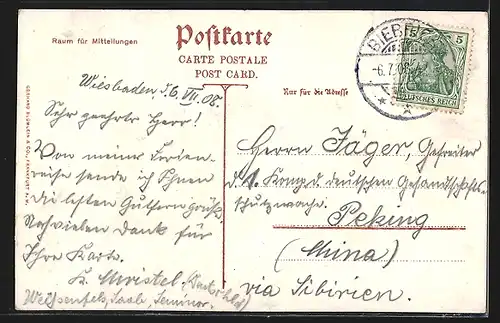 Raum für Mitteilungen
Postkarte
CARTE POSTALE
POST CARD.
Nur für die Adresse
BIEBRICH
-6.7.08
5
DEUTSCHES REICH
Wiesbaden, d. 6. VII. 08.
Sehr geehrter Herr!
Von meiner Ferien-
reise sende ich Ihnen
die besten Grüße.
Noch vielen Dank für
Ihre Karte.
Weißenfels, Saale, Seminar.
Herrn Jäger, Gefreiter
d. 1. Komp. d. deutschen Gesandtschafts-
schutzwache.
Peking
(China)
via Sibirien.